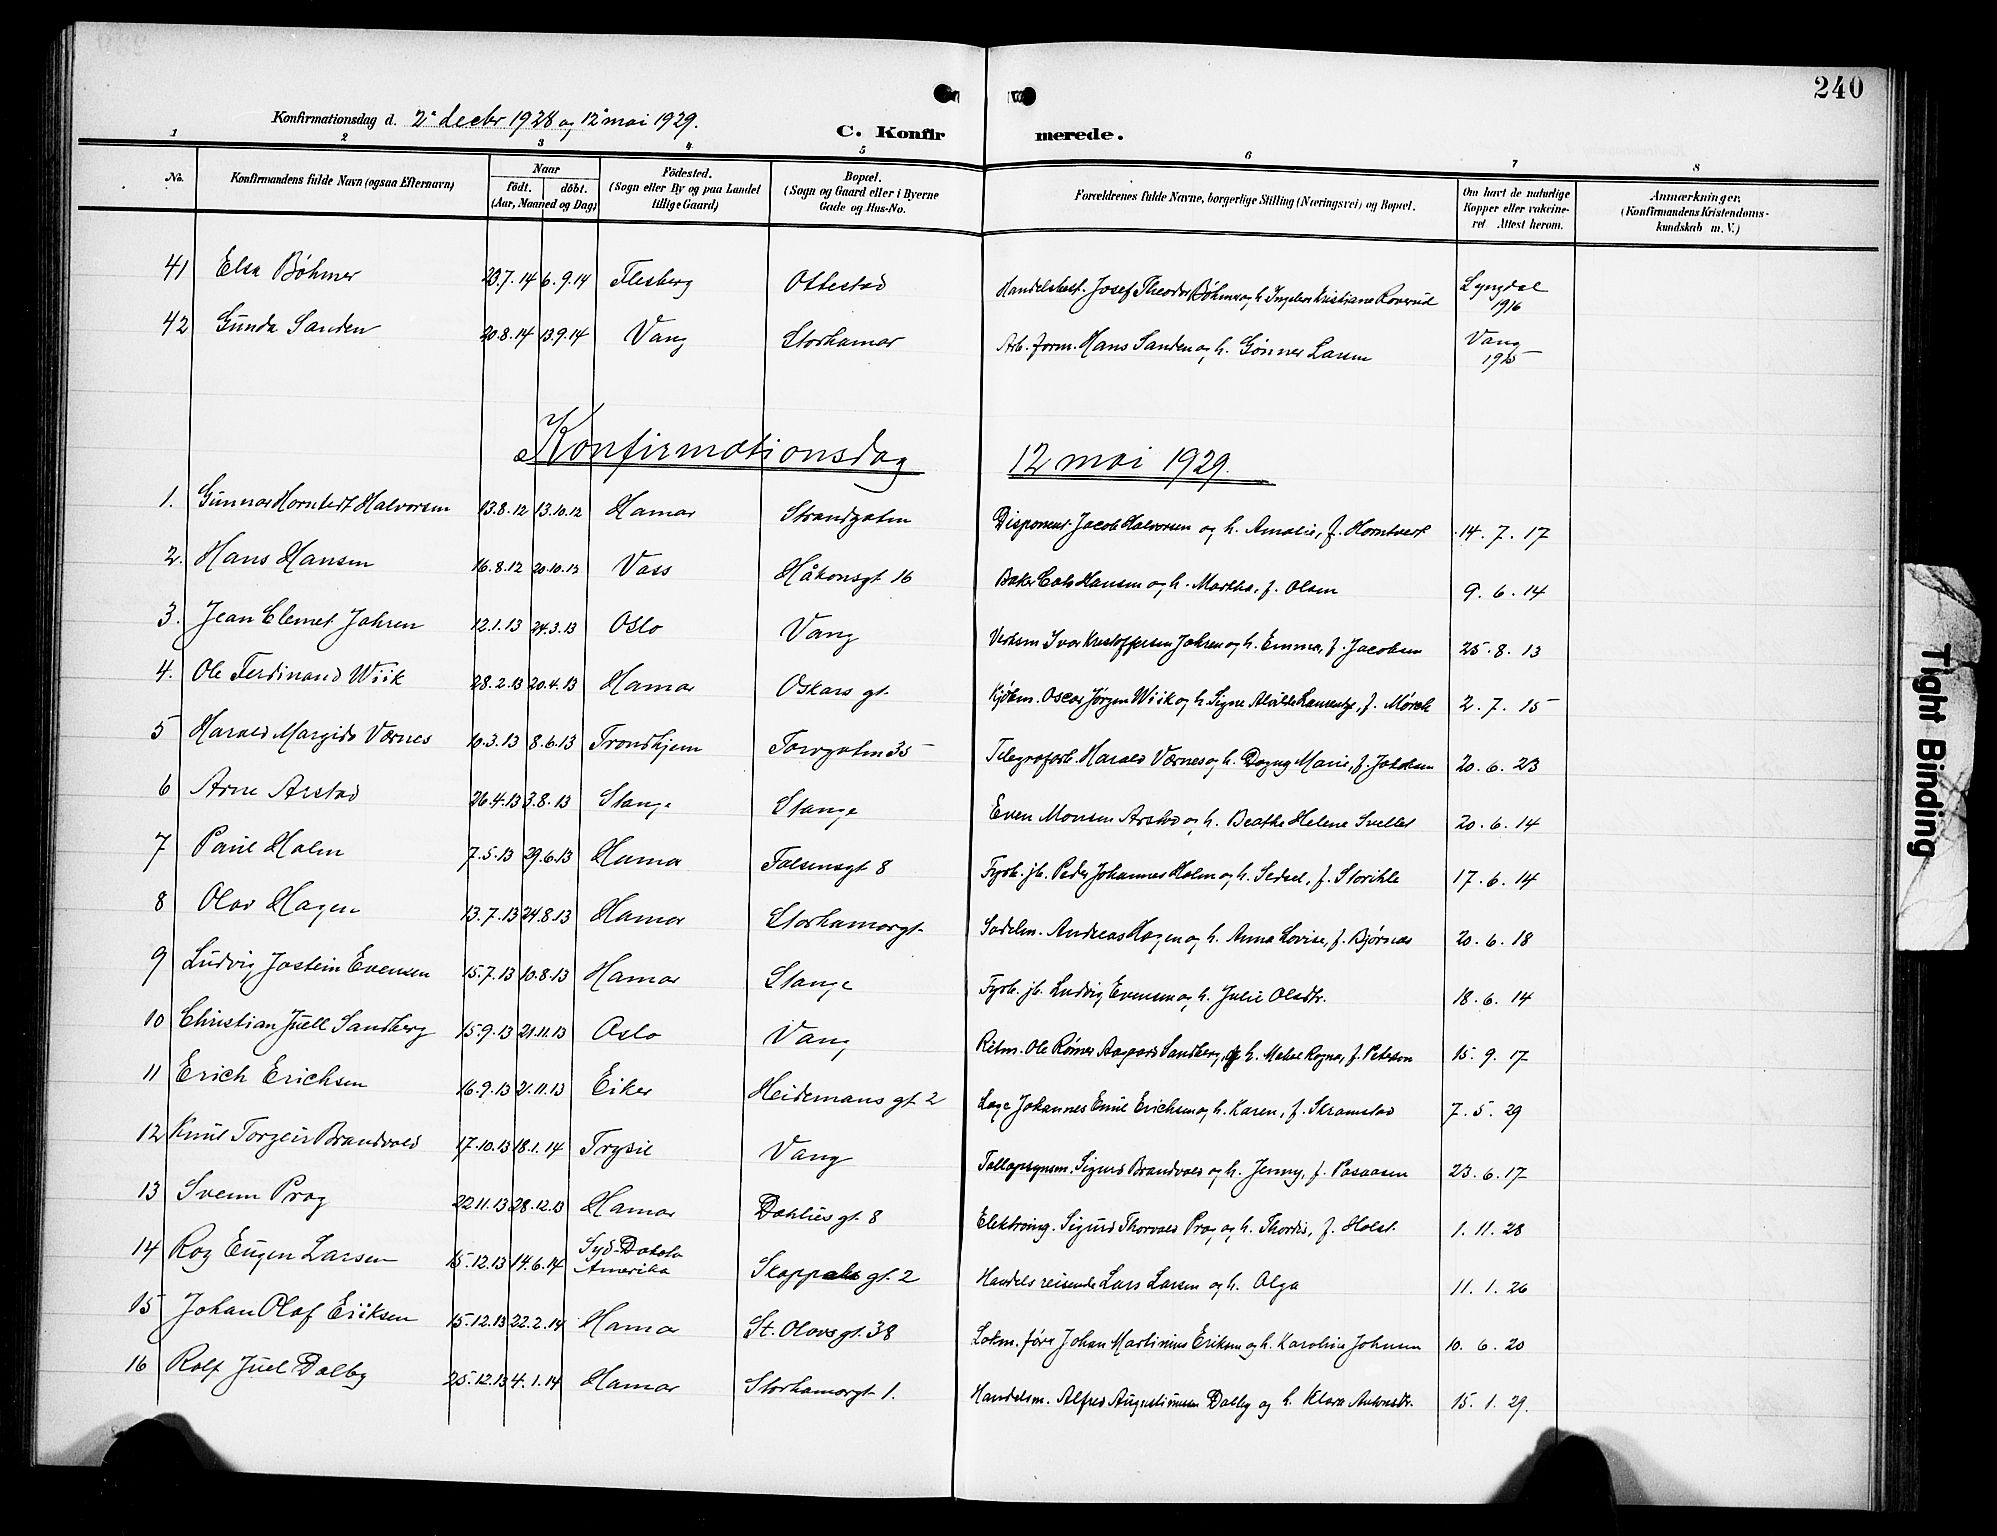 240
Konfirmationsdag d. 2 decbr 1928 og 12 mai 1929.
C. Konfirmerede.
1 2 3 4 5 6 7 8
No.
Konfirmandens fulde Navn (ogsaa Efternavn)
Naar
födt. döbt.
(Aar, Maaned og Dag)
Födested.
(Sogn eller By og paa Landet
tillige Gaard)
Bopæl.
(Sogn og Gaard eller i Byerne
Gade og Hus-No.
Forældrenes fulde Navne, borgerlige Stilling (Næringsvei) og Bopæl.
Om havt de naturlige
Kopper eller vakcine-
ret Attest herom.
Anmærkninger.
(Konfirmandens Kristendoms-
kundskab m. V.)
41 Elsa Bøhmer 23.7.14 6.9.14 Flesberg Ottestad Josef Theodor Bøhmer og h. Kristiane Lyngdal
1916
42 Gunda Sanden 20.8.14 13.9.14 Vang Storhamar Arb. form. Hans Sanden og h. Larsen Vang
1915
Konfirmationsdag 12 mai 1929.
1. Gunnar Halvorsen 13.8.12 13.10.12 Hamar Strandgaten Disponent Jacob Halvorsen og h. Amalie, f. 14.7.17
2. Hans Hansen 16.8.12 20.10.12 Håkonsgt 16 Baker Hansen og h. Martha, f. Olsen 9.6.14
3. Jean Clemet Jahren 12.1.13 24.3.13 Oslo Vang Verksm. Ivar Kristoffersen Jahren og h. Emma, f. Jacobsen 25.8.13
4. Ole Ferdinand Wiik 28.2.13 20.4.13 Hamar Oskars gt. Kjøbm. Oscar Jørgen Wiik og h. Signe f. Mørch 2.7.15
5 Harald Værnes 10.3.13 8.6.13 Trondhjem Torvgaten 35 Harald Værnes og h. Dagny Marie, f. 20.6.23
6 Arne Arstad 26.4.13 3.8.13 Stange Stange Even Monsen Arstad og h. Beathe Helene 20.6.14
7 Paul Holm 7.5.13 29.6.13 Hamar Falsensgt 8 Fyrb. jb. Peder Johannes Holm og h. f. Storihle 17.6.14
8 Olav Hagen 13.7.13 24.8.13 Hamar Storhamargt. Sadelm. Andreas Hagen og h. Anna Lovise, f. Bjørnas 20.6.18
9 Ludvig Jostein Evensen 15.7.13 10.8.13 Hamar Stange Fyrb. jb. Ludvig Evensen og h. Julie Olsdtr. 18.6.14
10 Christian Juell Sandberg 15.9.13 21.11.13 Oslo Vang Ritm. Ole Rømer Aagaard Sandberg og h. Ragna, f. Peterson 15.9.17
11 Erich Erichsen 16.9.13 2.11.13 Eiker Heidemans gt. 2 Læge Johannes Emil Erichsen og h. Karen, f. Skramstad 7.5.29
12 Knut Torgeir Brandvold 17.10.13 18.1.14 Trysil Vang Sigurd Brandvold og h. Jenny, f. 23.6.17
13 Svenn Prag 22.11.13 28.12.13 Hamar Dahlies gt. 8 Sigurd Thorvald Prag og h. Thordis, f. Holst 1.11.28
14 Roy Eugen Larsen 15.12.13 14.6.14 Syd-Dakota
Amerika gt. 2 Handelsreisende Lars Larsen og h. Olga 11.1.26
15 Johan Olaf Eriksen 15.12.13 22.2.14 Hamar St. Olavsgt. 38 Lokm. fører Johan Martinius Eriksen og h. Karoline Johnsen 10.6.20
16 Rolf Juel Dalby 25.12.13 4.1.14 Hamar Storhamargt 1. Handelsm. Alfred Augustinusen Dalby og h. Klara Antonsdtr. 15.1.29.
Tight Binding